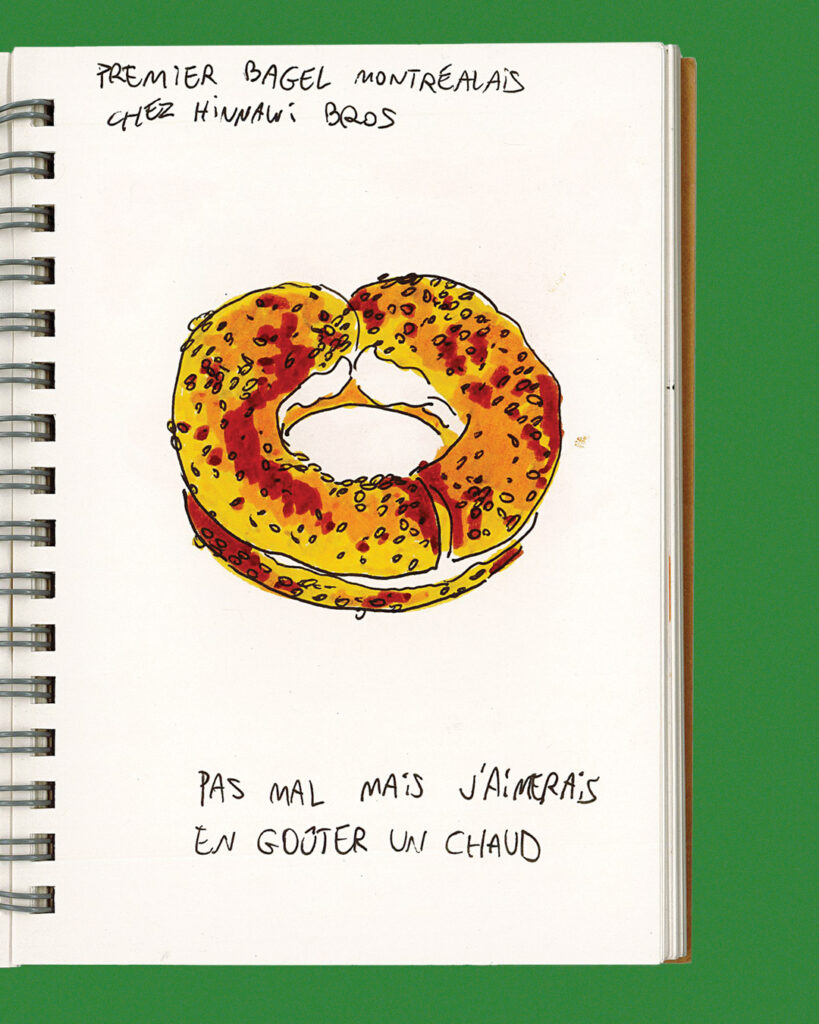 PREMIER BAGEL MONTRÉALAIS
CHEZ HINNAWI BROS
PAS MAL MAIS J'AIMERAIS
EN GOÛTER UN CHAUD